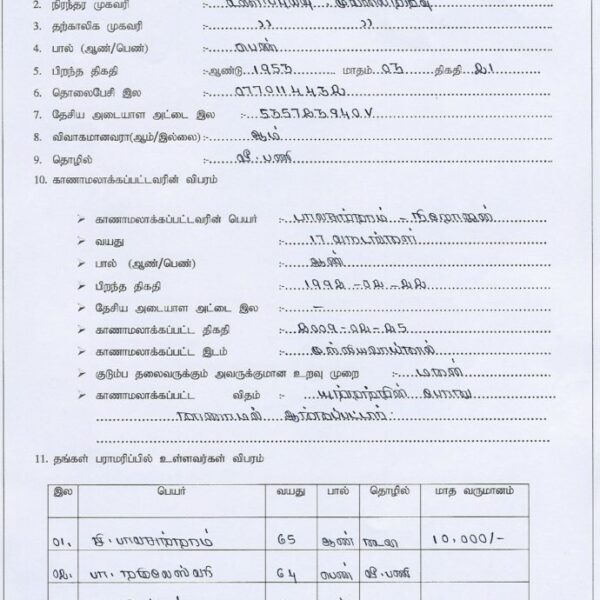 2. நிரந்தர முகவரி :-
3. தற்காலிக முகவரி :- '' ''
4. பால் (ஆண்/பெண்) :- பெண்
5. பிறந்த திகதி :-ஆண்டு 1953 மாதம் 03 திகதி 21
6. தொலைபேசி இல :- 0770114432
7. தேசிய அடையாள அட்டை இல :- 535783940V
8. விவாகமானவரா(ஆம்/இல்லை):- ஆம்
9. தொழில் :- வீ.பணி
10. காணாமலாக்கப்பட்டவரின் விபரம்
➢ காணாமலாக்கப்பட்டவரின் பெயர் :- பாலசுந்தரம் -
➢ வயது :- 17
➢ பால் (ஆண்/பெண்) :- ஆண்
➢ பிறந்த திகதி :- 1992-02-22
➢ தேசிய அடையாள அட்டை இல :- –
➢ காணாமலாக்கப்பட்ட திகதி :- 2009-02-25
➢ காணாமலாக்கப்பட்ட இடம் :-
➢ குடும்ப தலைவருக்கும் அவருக்குமான உறவு முறை :- மகன்
➢ காணாமலாக்கப்பட்ட விதம் :- யுத்தத்தின் போது
காணாமல் ஆக்கப்பட்டார்.
11. தங்கள் பராமரிப்பில் உள்ளவர்கள் விபரம்
இல பெயர் வயது பால் தொழில் மாத வருமானம்
01. பாலசுந்தரம் 65 ஆண் 10,000/-
02. பா. 64 பெண் வீ.பணி